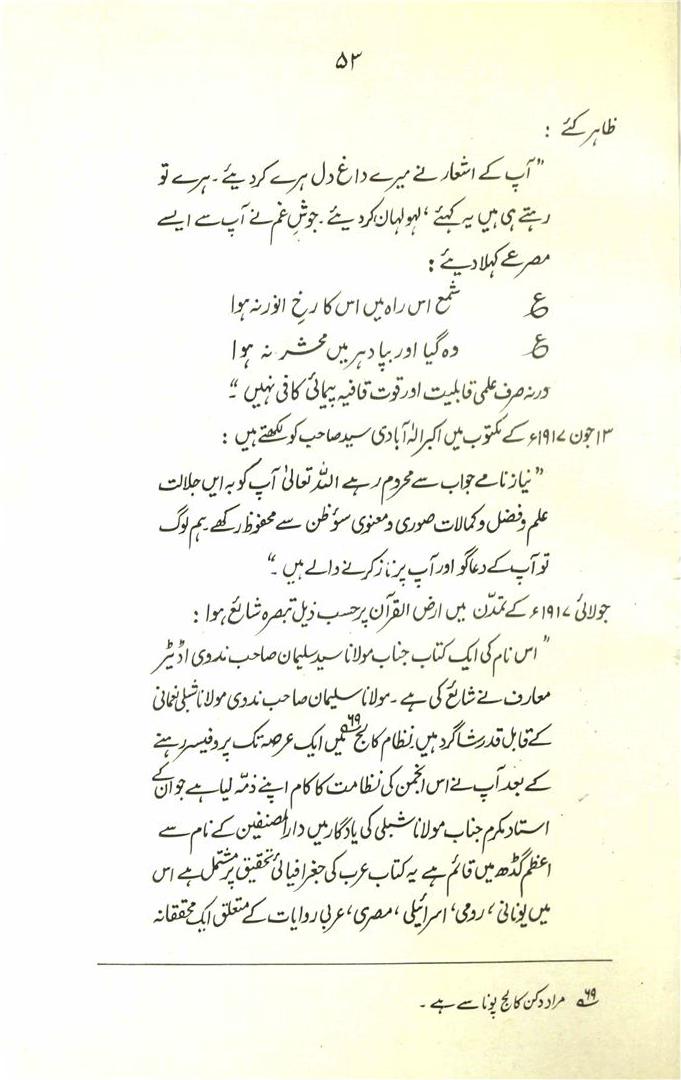 ۵۳
ظاہر کئے :
"آپ کے اشعار نے میرے داغ دل ہرے کر دیئے ۔ ہرے تو
رہتے ہی ہیں یہ کہئے ' لہو لہان کر دیئے ۔ جوشِ غم نے آپ سے ایسے
مصرعے کہلا دیئے :
ع شمع اس راہ میں اس کا رخِ انور نہ ہوا
ع وہ گیا اور بپا دہر میں محشر نہ ہوا
ورنہ صرف علمی قابلیت اور قوت قافیہ پیمائی کافی نہیں ۔"
۱۳ جون ۱۹۱۷ء کے مکتوب میں اکبر الٰہ آبادی سید صاحب کو لکھتے ہیں :
"نیاز نامے جواب سے محروم رہے اللہ تعالیٰ آپ کو بہ ایں جلالت
علم و فضل و کمالات صوری و معنوی سوءِ ظن سے محفوظ رکھے ۔ ہم لوگ
تو آپ کے دعا گو اور آپ پر ناز کرنے والے ہیں ۔"
جولائی ۱۹۱۷ء کے تمدّن میں ارض القرآن پر حسب ذیل تبصرہ شائع ہوا :
"اس نام کی ایک کتاب جناب مولانا سید سلیمان صاحب ندوی اڈیٹر
معارف نے شائع کی ہے ۔ مولانا سلیمان صاحب ندوی مولانا شبلی نعمانی
کے قابل قدر شاگرد ہیں۔ نظام کالج ۶۹؎ میں ایک عرصہ تک پروفیسر رہنے
کے بعد آپ نے اس انجمن کی نظامت کا کام اپنے ذمّہ لیا ہے جو ان کے
استاد مکرم جناب مولانا شبلی کی یادگار میں دارالمصنفین کے نام سے
اعظم گڈھ میں قائم ہے یہ کتاب عرب کی جغرافیائی تحقیق پر مشتمل ہے اس
میں یونانی ' رومی ' اسرائیلی ' مصری ' عربی روایات کے متعلق ایک محققانہ
۶۹؎ مراد دکن کالج پونا سے ہے ۔